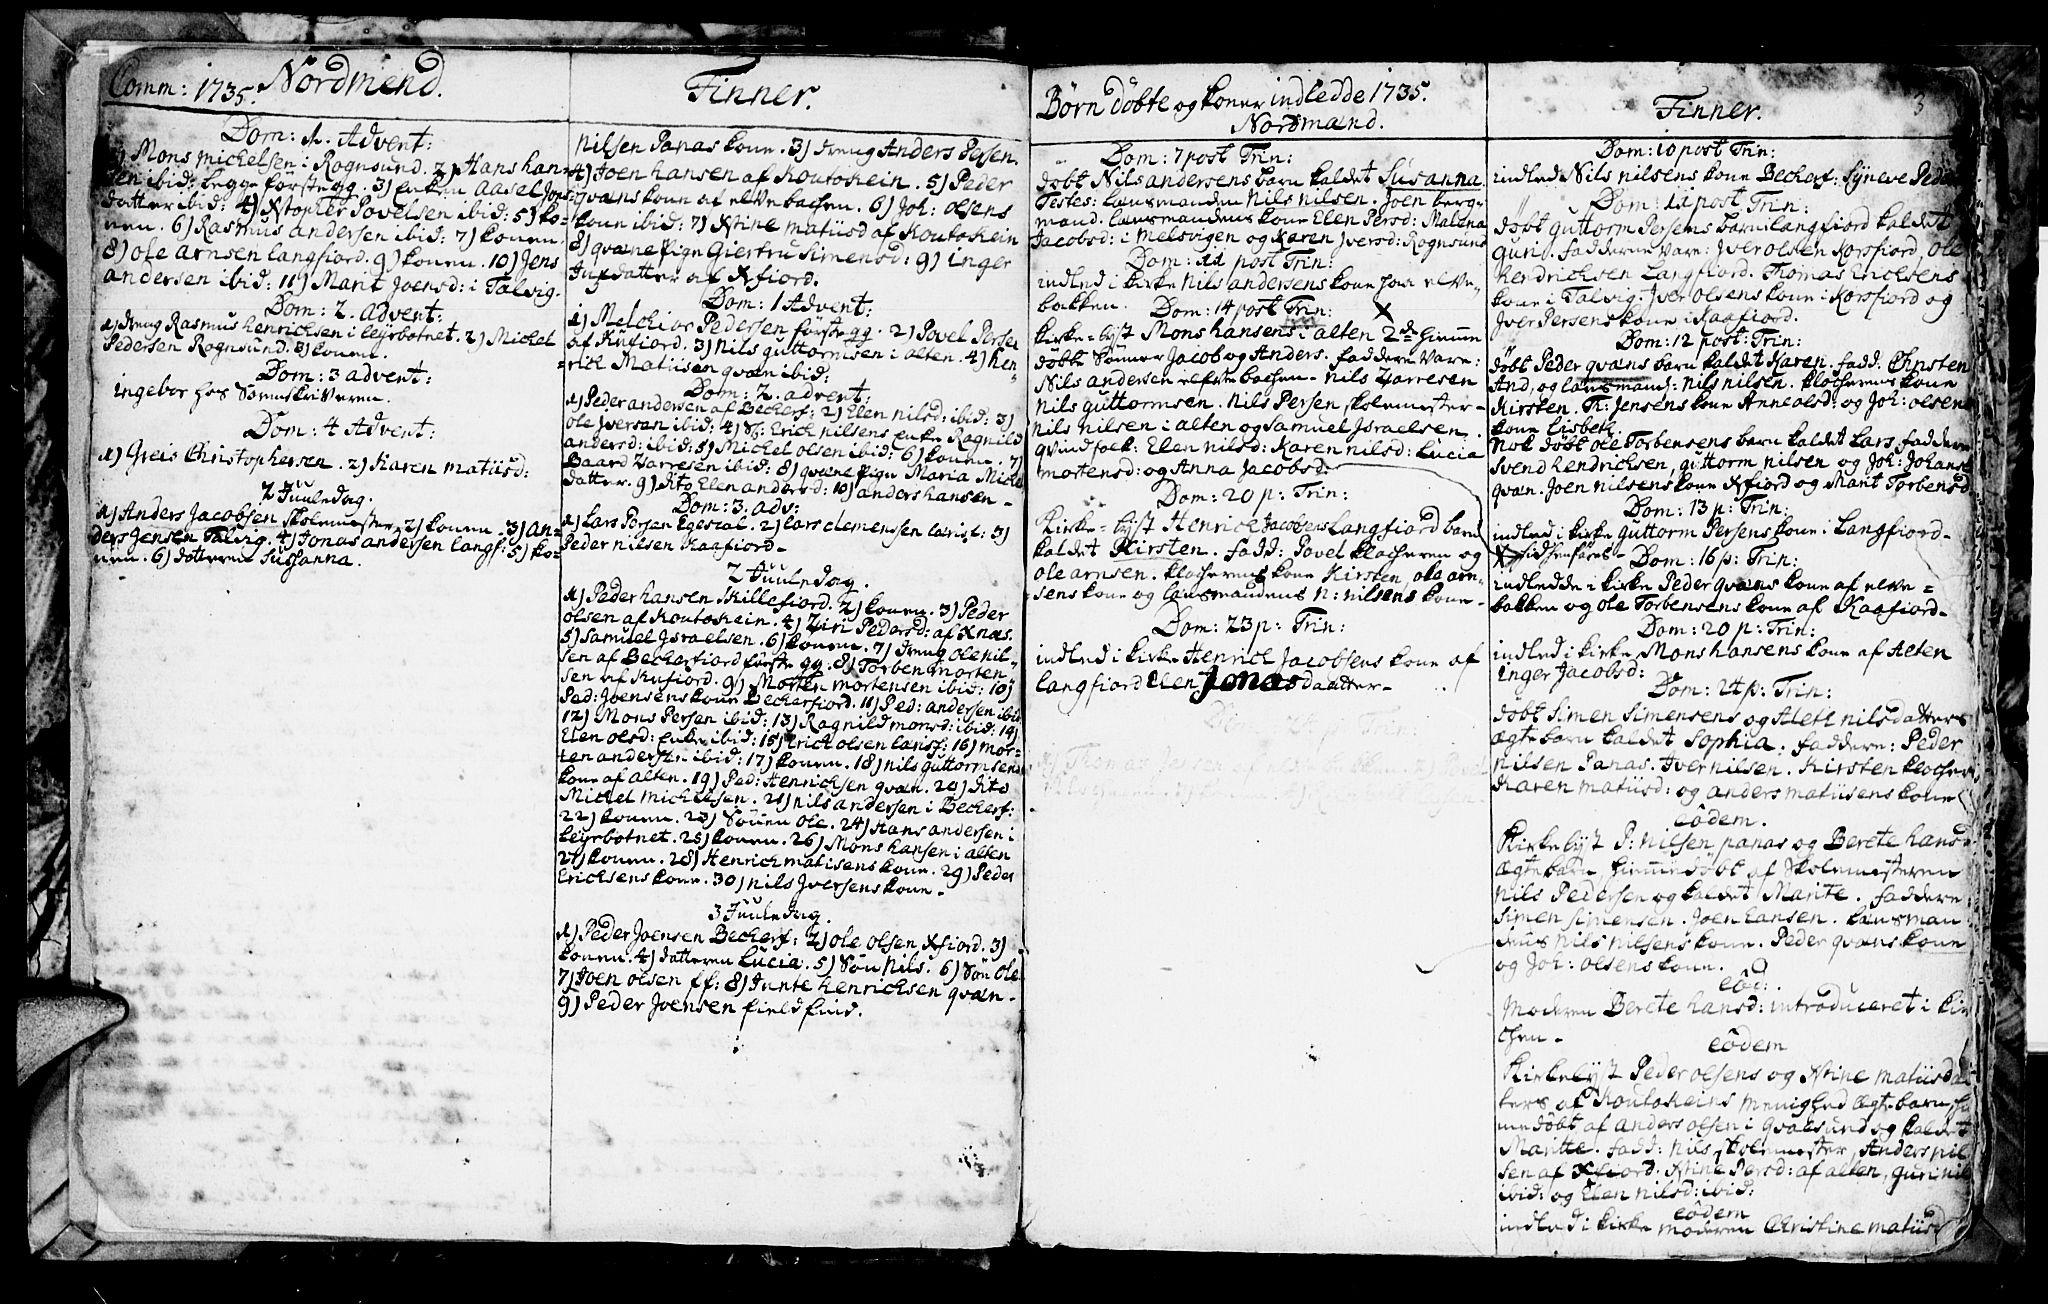 Comm: 1735. Nordmend.
Dom: 1. Advent:
1) Mons Michelsen i Rognsund. 2) Hans han-
sen ibid: begge første gg. 3) enken Aasel Jons-
datter ibid: 4) Xstopher Povelsen ibid: 5) ko-
nen. 6) Rasmus andersen ibid: 7) konen.
8) ole arnsen langfiord. 9) konen. 10) Jens
andersen ibid: 11) Marit Joensd: i Talvig.
Dom: 2. Advent:
1) dreng Rasmus henrichsen i leyrbotnet. 2) Michel
Pedersen Rognsund. 3) konen.
Dom: 3 advent:
ingebor hos Sorenskriveren.
Dom: 4 Advent:
1) Greis Christophersen. 2) Karen matiisd:
2 Juuledag.
1) Anders Jacobsen skolemester 2) konen. 3) an-
ders Jensen Talvig. 4) Jonas andersen langf: 5) ko-
nen. 6) datteren Sussanna.
Finner.
Nilsen Panas kone. 3) dreng Anders Persen.
4) Joen hansen af Koutokein. 5) Peder
qvæns kone af elvebachen. 6) Joh: olsens
kone ibid: 7) Xstine matiisd af Koutokein
8) qvæne pige Giertru Simensd: 9) inger
datter af Xfiord.
Dom: 1 Advent:
1) Melchior Pedersen første gg. 2) Povel Perse
af Kufiord. 3) Nils guttormsen i alten. 4) hen-
rich Matiisen qvæn ibid:
Dom: 2. advent:
1) Peder andersen af Beckerf: 2) Elen nilsd: ibid: 3)
ole Jversen ibid: 4) Sl: Erich nilsens enke Ragnild
andersd: ibid: 5) Michel olsen ibid: 6) konen. 7)
Baard Zarresen ibid: 8) qvæne pige Maria Michels
datter. 9) dito Elen andersd: 10) anders hansen -
Dom: 3. adv:
1) Lars Persen Egestal. 2) lars clemensen larisf: 3)
Peder nilsen Kaafiord -
2 Juuledag.
1) Peder hansen Skillefiord. 2) konen. 3) Peder
olsen af Koutokein. 4) Ziri Pedersd: af Xnæs.
5) Samuel Jsraelsen. 6) konen. 7) dreng ole nil-
sen af Beckerfiord første gg. 8) Torben morten-
sen af Kufiord. 9) Morten mortensen ibid: 10)
Ped: Joensens kone Beckerfiord. 11) Ped: andersen ibid
12) Mons Persen ibid: 13) Ragnild monsd: ibid: 14)
Elen olsd: enke ibid: 15) Erich olsen larisf: 16) mor-
ten andersen ibid: 17) konen. 18) nils guttormsens
kone af alten. 19) Ped: Henrichsen qvæn. 20) dito
Michel Michelsen. 21) nils andersen i Beckerf:
22) konen. 23) Sønnen ole. 24) Hans andersen i
leyrbotnet. 25) konen. 26) Mons hansen i alten
27) konen. 28) Henrich matisens kone. 29) Peder
Erichsens kone. 30) nils Jversens kone -
3 Juuledag.
1) Peder Joensen Beckerf: 2) ole olsen Xfiord. 3)
konen. 4) datteren Lucia. 5) Søn Nils. 6) Søn ole
7) Joen olsen ff: 8) Junte henrichsen qvæn -
9) Peder Joensen fieldfind.
Børn døbte og koner indledde 1735.
Nordmænd.
Dom: 7 post Trin:
døbt Nils andersens barn kaldet Susanna.
Testes: lænsmanden Nils nilsen. Joen berg-
mand. lænsmandens kone Elen Persd: Malena
Jacobsd: i Melsvigen og Karen Jversd: Rognsund
Dom: 11 post Trin:
indled i kirke Nils andersens kone paa elve-
bakken. Dom: 14 post Trin: X
kirke-lyst Mons hansens i alten 2de hieme
døbte Sønner Jacob og Anders. faddere vare:
Nils andersen elvebachen - Nils Zarresen
Nils guttormsen. Nils Persen skolemester -
Nils nilsen i alten og Samuel Jsraelsen.
qvindfolk: Elen nilsd: Karen nilsd: Lucia
mortensd: og Anna Jacobsd:
Dom: 20 p: Trin:
Kirke-lyst Henrich Jacobsens Langfiord barn
kaldet Kirsten. fadd: Povel klocheren og
ole arnsen. klocherens kone Kirsten, ole arn-
sens kone og lænsmandens N: nilsens kone -
Dom: 23 p: Trin:
indled i kirke Henrich Jacobsens kone af
langfiord Elen Jonasdaatter -
Finner. 3
Dom: 10 post Trin:
indled Nils nilsens kone Beckerf: Syneve Peders
Dom: 11 post Trin:
døbt guttorm Persens barn langfiord kaldet
guri. fadderne vare: Jver olsen Korsfiord, ole
hendrichsen Langfiord. Thomas Erichsens
kone i Talvig. Jver olsens kone i Korsfiord og
Jver Persens kone i Kaafiord.
Dom: 12 post: Trin:
døbt Peder qvæns barn kaldet Karen. fadd: Christen
And, og lænsmand: nils nilsen. klocherens kone
Kirsten. Th: Jensens kone Anne olsd: og Joh: olsens
kone Lisbeth.
Nok døbt ole Torbensens barn kaldet Lars. faddere
Svend hendrichsen, guttorm nilsen og Joh: Johanse
qvæn. Joen nilsens kone Xfiord og Marit Torbensd
Dom: 13 p: Trin:
indled i kirke guttorm Persens kone i Langfiord -
X Dom: 16 p: Trin:
indledde i kirke Peder qvæns kone af elve-
bakken og ole Torbensens kone af Kaafiord -
Dom: 20 p: Trin:
indled i kirke Mons hansens kone af Alten
inger Jacobsd:
Dom: 24 p: Trin:
døbt Simen Simensens og Aleth nilsdatters
ægte barn kaldet Sophia. faddere: Peder
nilsen Panas. Jver nilsen. Kirsten klocher
Karen matiisd: og anders matiisens kone
eodem.
Kirkelyst P: Nilsen panas og Berete hansd
ægte barn, hiemedøbt af Skolemesteren
Nils Pedersen og kaldet Marite. faddere:
Simen Simensen. Joen hansen. lænsman-
dens Nils nilsens kone. Peder qvæns kone
og Joh: olsens kone.
eod:
Moderen Berete hansd: introduceret i kir-
chen -
eodem
Kirkelyst Peder olsens og Xstine matiisdat
ters af Koutokeins menighed ægte barn, hie
medøbt af anders olsen i qvalsund og kaldet
Maritte. fadd: Nils skolemester, Anders nil
sen af Xfiord. Xstine Persd: af alten, guri nils
ibid: og Elen nilsd: ibid:
eodem
indled i kirke moderen Christine matiisd